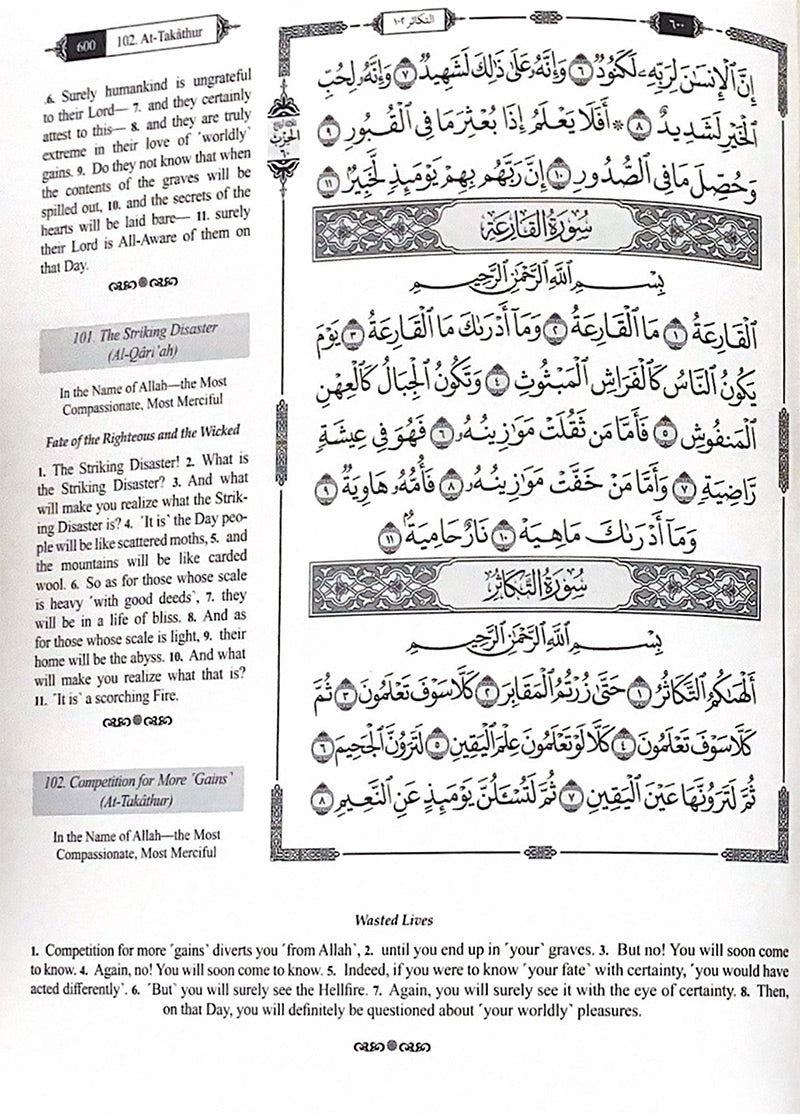 600
102. At-Takâthur
التكاثر ١٠٢
٦٠٠
6. Surely humankind is ungrateful
to their Lord— 7. and they certainly
attest to this— 8. and they are truly
extreme in their love of ˹worldly˺
gains. 9. Do they not know that when
the contents of the graves will be
spilled out, 10. and the secrets of the
hearts will be laid bare— 11. surely
their Lord is All-Aware of them on
that Day.
101. The Striking Disaster
(Al-Qâri'ah)
In the Name of Allah—the Most
Compassionate, Most Merciful
Fate of the Righteous and the Wicked
1. The Striking Disaster! 2. What is
the Striking Disaster? 3. And what
will make you realize what the Strik-
ing Disaster is? 4. ˹It is˺ the Day peo-
ple will be like scattered moths, 5. and
the mountains will be like carded
wool. 6. So as for those whose scale
is heavy ˹with good deeds˺, 7. they
will be in a life of bliss. 8. And as
for those whose scale is light, 9. their
home will be the abyss. 10. And what
will make you realize what that is?
11. ˹It is˺ a scorching Fire.
102. Competition for More ˹Gains˺
(At-Takâthur)
In the Name of Allah—the Most
Compassionate, Most Merciful
إِنَّ ٱلْإِنسَٰنَ لِرَبِّهِۦ لَكَنُودٌ ٦ وَإِنَّهُۥ عَلَىٰ ذَٰلِكَ لَشَهِيدٌ ٧ وَإِنَّهُۥ لِحُبِّ
ٱلْخَيْرِ لَشَدِيدٌ ٨ ۞ أَفَلَا يَعْلَمُ إِذَا بُعْثِرَ مَا فِى ٱلْقُبُورِ ٩
وَحُصِّلَ مَا فِى ٱلصُّدُورِ ١٠ إِنَّ رَبَّهُم بِهِمْ يَوْمَئِذٍ لَّخَبِيرٌۢ ١١
الحزب
٦٠
سُورَةُ القَارِعَةِ
بِسْمِ ٱللَّهِ ٱلرَّحْمَٰنِ ٱلرَّحِيمِ
ٱلْقَارِعَةُ ١ مَا ٱلْقَارِعَةُ ٢ وَمَآ أَدْرَىٰكَ مَا ٱلْقَارِعَةُ ٣ يَوْمَ
يَكُونُ ٱلنَّاسُ كَٱلْفَرَاشِ ٱلْمَبْثُوثِ ٤ وَتَكُونُ ٱلْجِبَالُ كَٱلْعِهْنِ
ٱلْمَنفُوشِ ٥ فَأَمَّا مَن ثَقُلَتْ مَوَٰزِينُهُۥ ٦ فَهُوَ فِى عِيشَةٍ
رَّاضِيَةٍ ٧ وَأَمَّا مَنْ خَفَّتْ مَوَٰزِينُهُۥ ٨ فَأُمُّهُۥ هَاوِيَةٌ ٩
وَمَآ أَدْرَىٰكَ مَا هِيَهْ ١٠ نَارٌ حَامِيَةٌۢ ١١
سُورَةُ التَّكَاثُرِ
بِسْمِ ٱللَّهِ ٱلرَّحْمَٰنِ ٱلرَّحِيمِ
أَلْهَىٰكُمُ ٱلتَّكَاثُرُ ١ حَتَّىٰ زُرْتُمُ ٱلْمَقَابِرَ ٢ كَلَّا سَوْفَ تَعْلَمُونَ ٣ ثُمَّ
كَلَّا سَوْفَ تَعْلَمُونَ ٤ كَلَّا لَوْ تَعْلَمُونَ عِلْمَ ٱلْيَقِينِ ٥ لَتَرَوُنَّ ٱلْجَحِيمَ ٦
ثُمَّ لَتَرَوُنَّهَا عَيْنَ ٱلْيَقِينِ ٧ ثُمَّ لَتُسْـَٔلُنَّ يَوْمَئِذٍ عَنِ ٱلنَّعِيمِ ٨
Wasted Lives
1. Competition for more ˹gains˺ diverts you ˹from Allah˺, 2. until you end up in ˹your˺ graves. 3. But no! You will soon come
to know. 4. Again, no! You will soon come to know. 5. Indeed, if you were to know ˹your fate˺ with certainty, ˹you would have
acted differently˺. 6. ˹But˺ you will surely see the Hellfire. 7. Again, you will surely see it with the eye of certainty. 8. Then,
on that Day, you will definitely be questioned about ˹your worldly˺ pleasures.